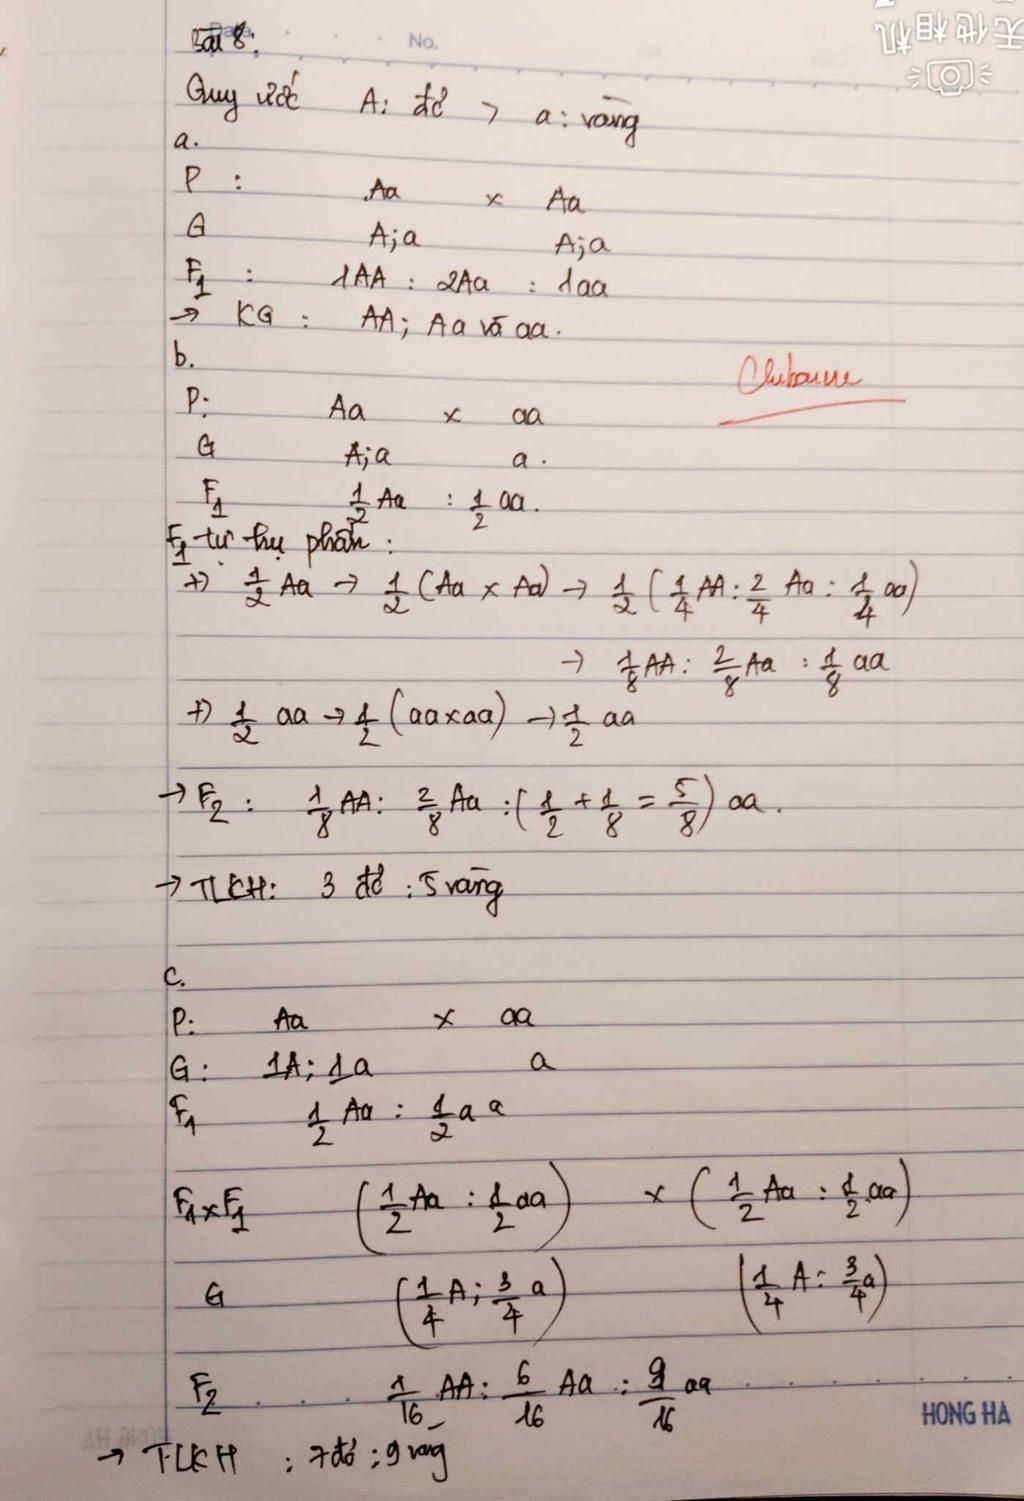 Bài 8:
No.
无他相机
Quy ước A: đỏ > a: vàng
a.
P : Aa x Aa
G A;a A;a
F1 : 1AA : 2Aa : 1aa
→ KG : AA; Aa và aa.
b.
P: Aa x aa
G A;a a.
F1 1/2 Aa : 1/2 aa.
F1 tự thụ phấn:
+) 1/2 Aa → 1/2 (Aa x Aa) → 1/2 (1/4 AA : 2/4 Aa : 1/4 aa)
→ 1/8 AA : 2/8 Aa : 1/8 aa
+) 1/2 aa → 1/2 (aaxaa) → 1/2 aa
→ F2 : 1/8 AA : 2/8 Aa : (1/2 + 1/8 = 5/8) aa.
→ TLKH: 3 đỏ : 5 vàng
c.
P: Aa x aa
G: 1A; 1a a
F1 1/2 Aa : 1/2 aa
F1xF1 (1/2 Aa : 1/2 aa) x (1/2 Aa : 1/2 aa)
G (1/4 A; 3/4 a) (1/4 A : 3/4 a)
F2 1/16 AA : 6/16 Aa : 9/16 aa
HONG HA
→ TLKH : 7 đỏ : 9 vàng